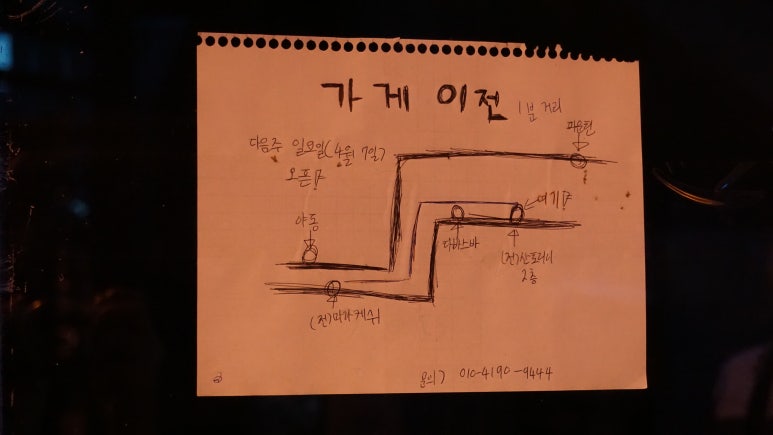 가게 이전 1분 거리
다음주 일요일(4월 7일)
오픈!
파운틴
여기!
야동
다비스바
(전)산토리니
2층
(전)마라케쉬
문의) 010-4190-9444